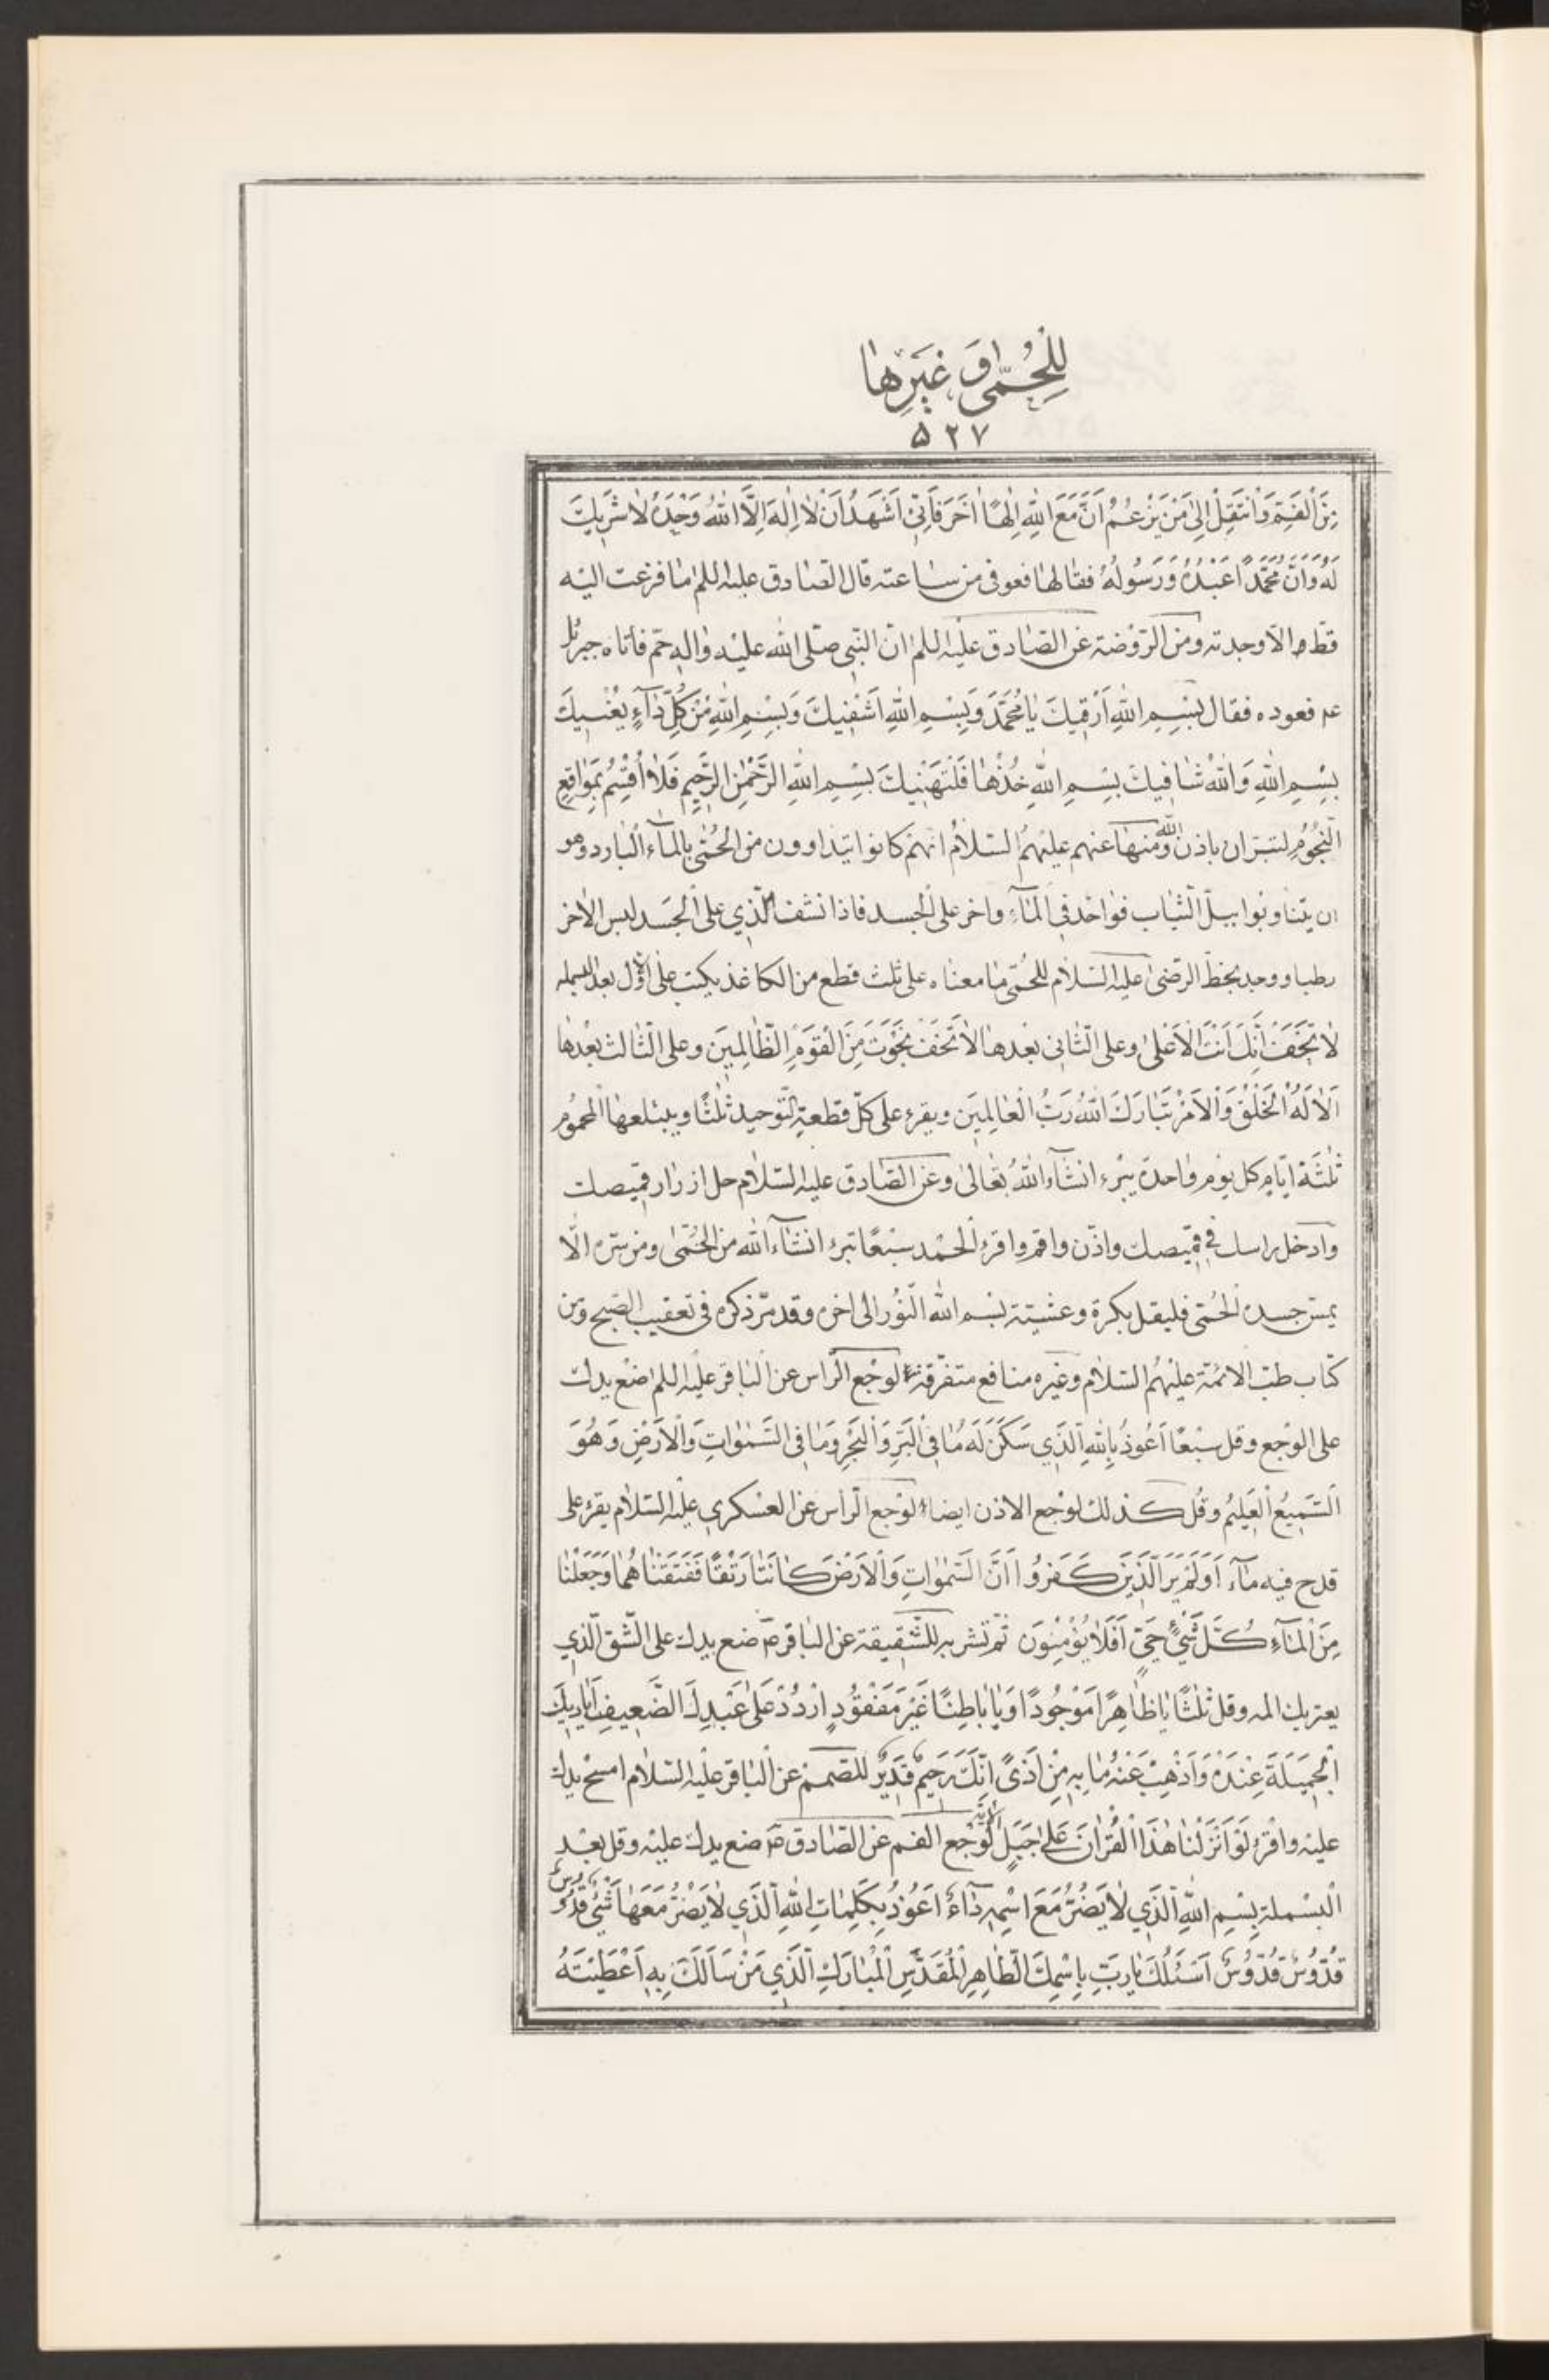 لِلْحُمّٰى وَغَيْرِهٰا
۵۲۷
مِنَ الْفَمِ وَانْتَقِلْ اِلىٰ مَنْ يَزْعُمُ اَنَّ مَعَ اللّٰهِ اِلٰهًا اٰخَرَ فَاِنّي اَشْهَدُ اَنْ لٰا اِلٰهَ اِلَّا اللّٰهُ وَحْدَهُ لٰا شَرِيكَ
لَهُ وَاَنَّ مُحَمَّدًا عَبْدُهُ وَرَسُولُهُ فقالها فعوفى من ساعته قال الصّادق عليه اللم ما فزعت اليه
قطّ الّا وجدته ومن الرّوضة عن الصّادق عليه اللم انّ النّبى صلّى الله عليه واله حمّ فأتاه جبرئل
عم فعوده فقال بِسْمِ اللّٰهِ اَرْقيكَ يٰا مُحَمَّدُ وَبِسْمِ اللّٰهِ اَشْفيكَ وَبِسْمِ اللّٰهِ مِنْ كُلِّ دٰاۤءٍ يُعْنيكَ
بِسْمِ اللّٰهِ وَاللّٰهُ شٰافيكَ بِسْمِ اللّٰهِ خُذْهٰا فَلْتَهْنيكَ بِسْمِ اللّٰهِ الرَّحْمٰنِ الرَّحيمِ فَلٰا اُقْسِمُ بِمَوٰاقِعِ
النُّجُومِ لتبرأن باذن الله ومنها عنهم عليهم السّلام انّهم كانوا يتداوون من الحُمّى بالمآء البارد وهو
ان يتناوبوا ببلّ الثّياب فواحد فى المآء واخر على الجسد فاذا نشف الّذي على الجسد لبس الاخر
رطبا ووجد بخطّ الرّضى عليه السّلام للحُمّى ما معناه على ثلث قطع من الكاغذ يكتب على الاوّل بعد البسمله
لٰا تَخَفْ اِنَّكَ اَنْتَ الْاَعْلىٰ وعلى الثّانى بعدها لٰا تَخَفْ نَجَوْتَ مِنَ الْقَوْمِ الظّٰالِمينَ وعلى الثّالث بعدها
اَلٰا لَهُ الْخَلْقُ وَالْاَمْرُ تَبٰارَكَ اللّٰهُ رَبُّ الْعٰالَمينَ ويقرء على كلّ قطعة التّوحيد ثلثًا ويبتلعها المحموم
ثلثة ايّام كل يوم واحدة يبرء انشآء الله تعالى وعن الصّادق عليه السّلام حل ازرار قميصك
وادخل راسك فى قميصك واذّن واقم واقرء الحمد سبعًا تبرء انشآء الله من الحُمّى ومن سرّه الّا
يمسّ جسده الحُمّى فليقل بكرة وعشيّة بسم الله النّور الى اخره وقد مرّ ذكره فى تعقيب الصّبح ومن
كتاب طبّ الائمّة عليهم السّلام وغيره منافع متفرّقة لوجع الرّاس عن الباقر عليه اللم ضع يدك
على الوجع وقل سبعًا اَعُوذُ بِاللّٰهِ الَّذي سَكَنَ لَهُ مٰا فِى الْبَرِّ وَالْبَحْرِ وَمٰا فِى السَّمٰوٰاتِ وَالْاَرْضِ وَهُوَ
السَّميعُ الْعَليمُ وقل كذلك لوجع الاذن ايضا لوجع الرّاس عن العسكري عليه السّلام يقرء على
قدح فيه مآء اَوَلَمْ يَرَ الَّذينَ كَفَرُوا اَنَّ السَّمٰوٰاتِ وَالْاَرْضَ كٰانَتٰا رَتْقًا فَفَتَقْنٰاهُمٰا وَجَعَلْنٰا
مِنَ الْمٰاۤءِ كُلَّ شَيْءٍ حَيٍّ اَفَلٰا يُؤْمِنُونَ ثمّ تشربه للشّقيقة عن الباقر ع ضع يدك على الشّق الّذي
يعتريك المه وقل ثلثًا يٰا ظٰاهِرًا مَوْجُودًا وَيٰا بٰاطِنًا غَيْرَ مَفْقُودٍ اُرْدُدْ عَلىٰ عَبْدِكَ الضَّعيفِ اَيٰاديكَ
الْجَميلَةَ عِنْدَهُ وَاَذْهِبْ عَنْهُ مٰا بِهِ مِنْ اَذىً اِنَّكَ رَحيمٌ قَديرٌ للصّمم عن الباقر عليه السّلام امسح يدك
عليه واقرء لَوْ اَنْزَلْنٰا هٰذَا الْقُرْاٰنَ عَلىٰ جَبَلٍ الاية لوجع الفم عن الصّادق ع ضع يدك عليه وقل بعد
البسملة بِسْمِ اللّٰهِ الَّذي لٰا يَضُرُّ مَعَ اسْمِهِ دٰاۤءٌ اَعُوذُ بِكَلِمٰاتِ اللّٰهِ الَّتي لٰا يَضُرُّ مَعَهٰا شَيْءٌ قُدُّوسٌ
قُدُّوسٌ قُدُّوسٌ اَسْئَلُكَ يٰا رَبِّ بِاسْمِكَ الطّٰاهِرِ الْمُقَدَّسِ الْمُبٰارَكِ الَّذي مَنْ سَاَلَكَ بِهِ اَعْطَيْتَهُ